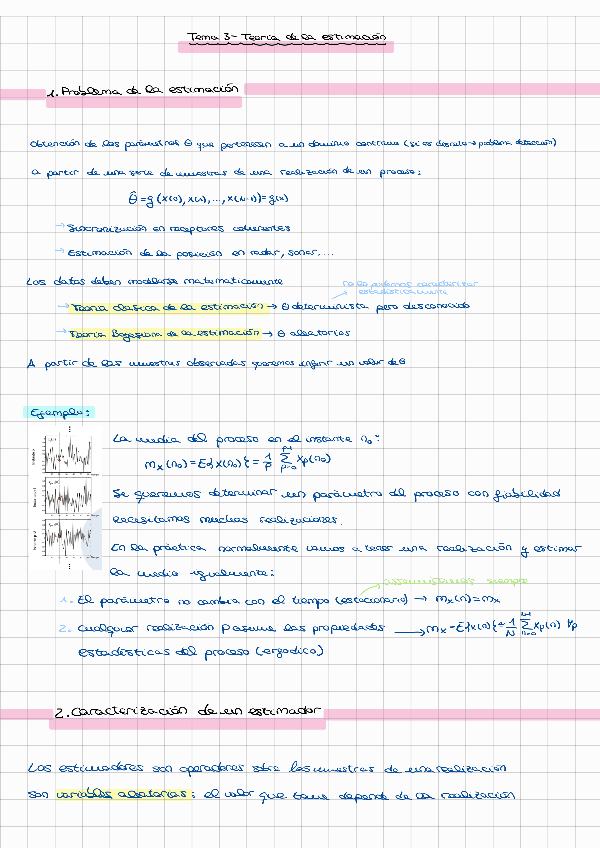 Tema 3 - Teoría de la estimación
1. Problema de la estimación
Obtención de los parámetros θ que pertenecen a un dominio continuo (si es discreto → problema detección)
a partir de una serie de muestras de una realización de un proceso:
θ̂ = g (x(0), x(1), ..., x(N-1)) = g(x)
→ Sincronización en receptores coherentes
→ Estimación de la posición en radar, sonar....
Los datos deben modelarse matemáticamente
no la podemos caracterizar
estadísticamente
→ Teoría clásica de la estimación → θ determinista pero desconocido
→ Teoría Bayesiana de la estimación → θ aleatorios
A partir de las muestras observadas queremos inferir un valor de θ
Ejemplo:
La media del proceso en el instante n₀:
mₓ(n₀) = E{x(n₀)} = 1/P Σ xₚ(n₀)
Si queremos determinar un parámetro del proceso con fiabilidad
necesitamos muchas realizaciones.
En la práctica normalmente vamos a tener una realización y estimar
la media igualmente:
asumiremos siempre
1. El parámetro no cambia con el tiempo (estacionario) → mₓ(n) = mₓ
2. Cualquier realización p asume las propiedades → mₓ = E{x(n)} = 1/N Σ xₚ(n) ∀p
estadísticas del proceso (ergodico)
2. Caracterización de un estimador
Los estimadores son operadores sobre las muestras de una realización
son variables aleatorias: el valor que toma depende de la realización